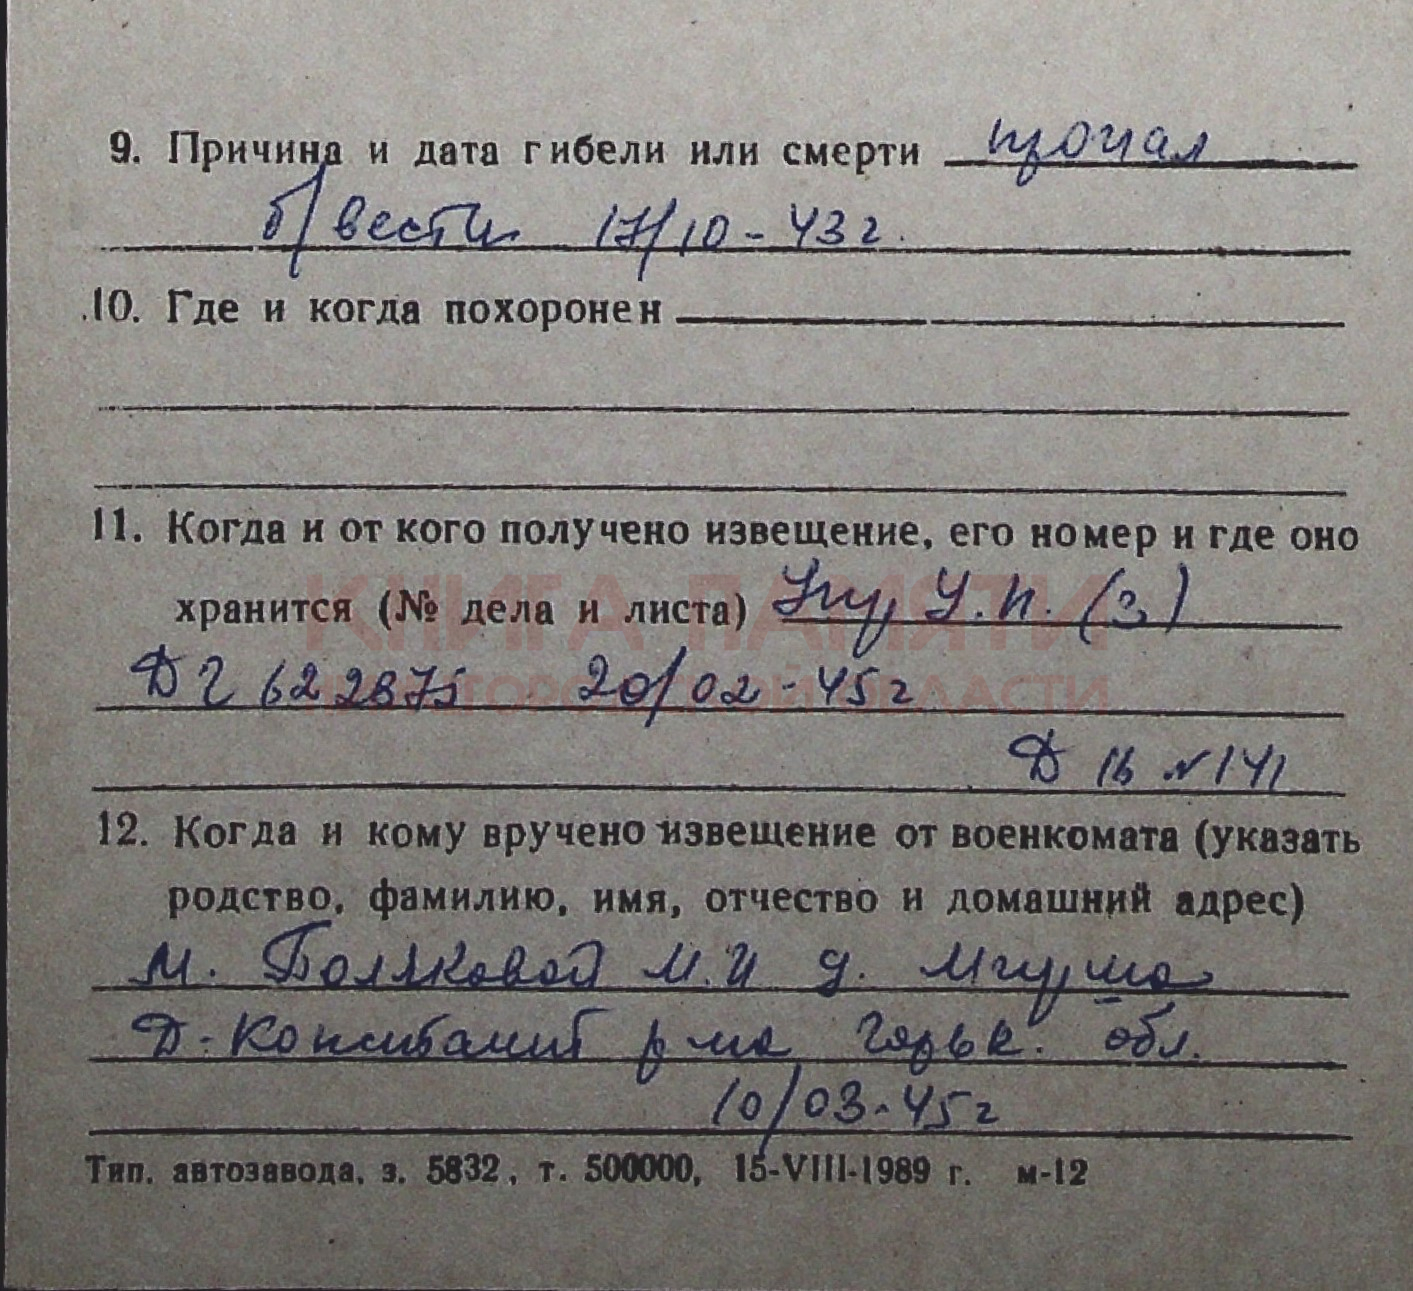 9. Причина и дата гибели или смерти пропал
б/вести 17/10-43г.
10. Где и когда похоронен
11. Когда и от кого получено извещение, его номер и где оно
КНИГА ПАМЯТИ
хранится (№ дела и листа) У.П. (з)
НИЖЕГОРОДСКОЙ ОБЛАСТИ
20/02-45г
Д 16 № 141
12. Когда и кому вручено извещение от военкомата (указать
родство, фамилию, имя, отчество и домашний адрес)
М. Поляковой М.И д.
Д-Констант р-на Горьк. обл.
10/03-45г
Тип. автозавода, з. 5832, т. 500000, 15-VIII-1989 г. м-12